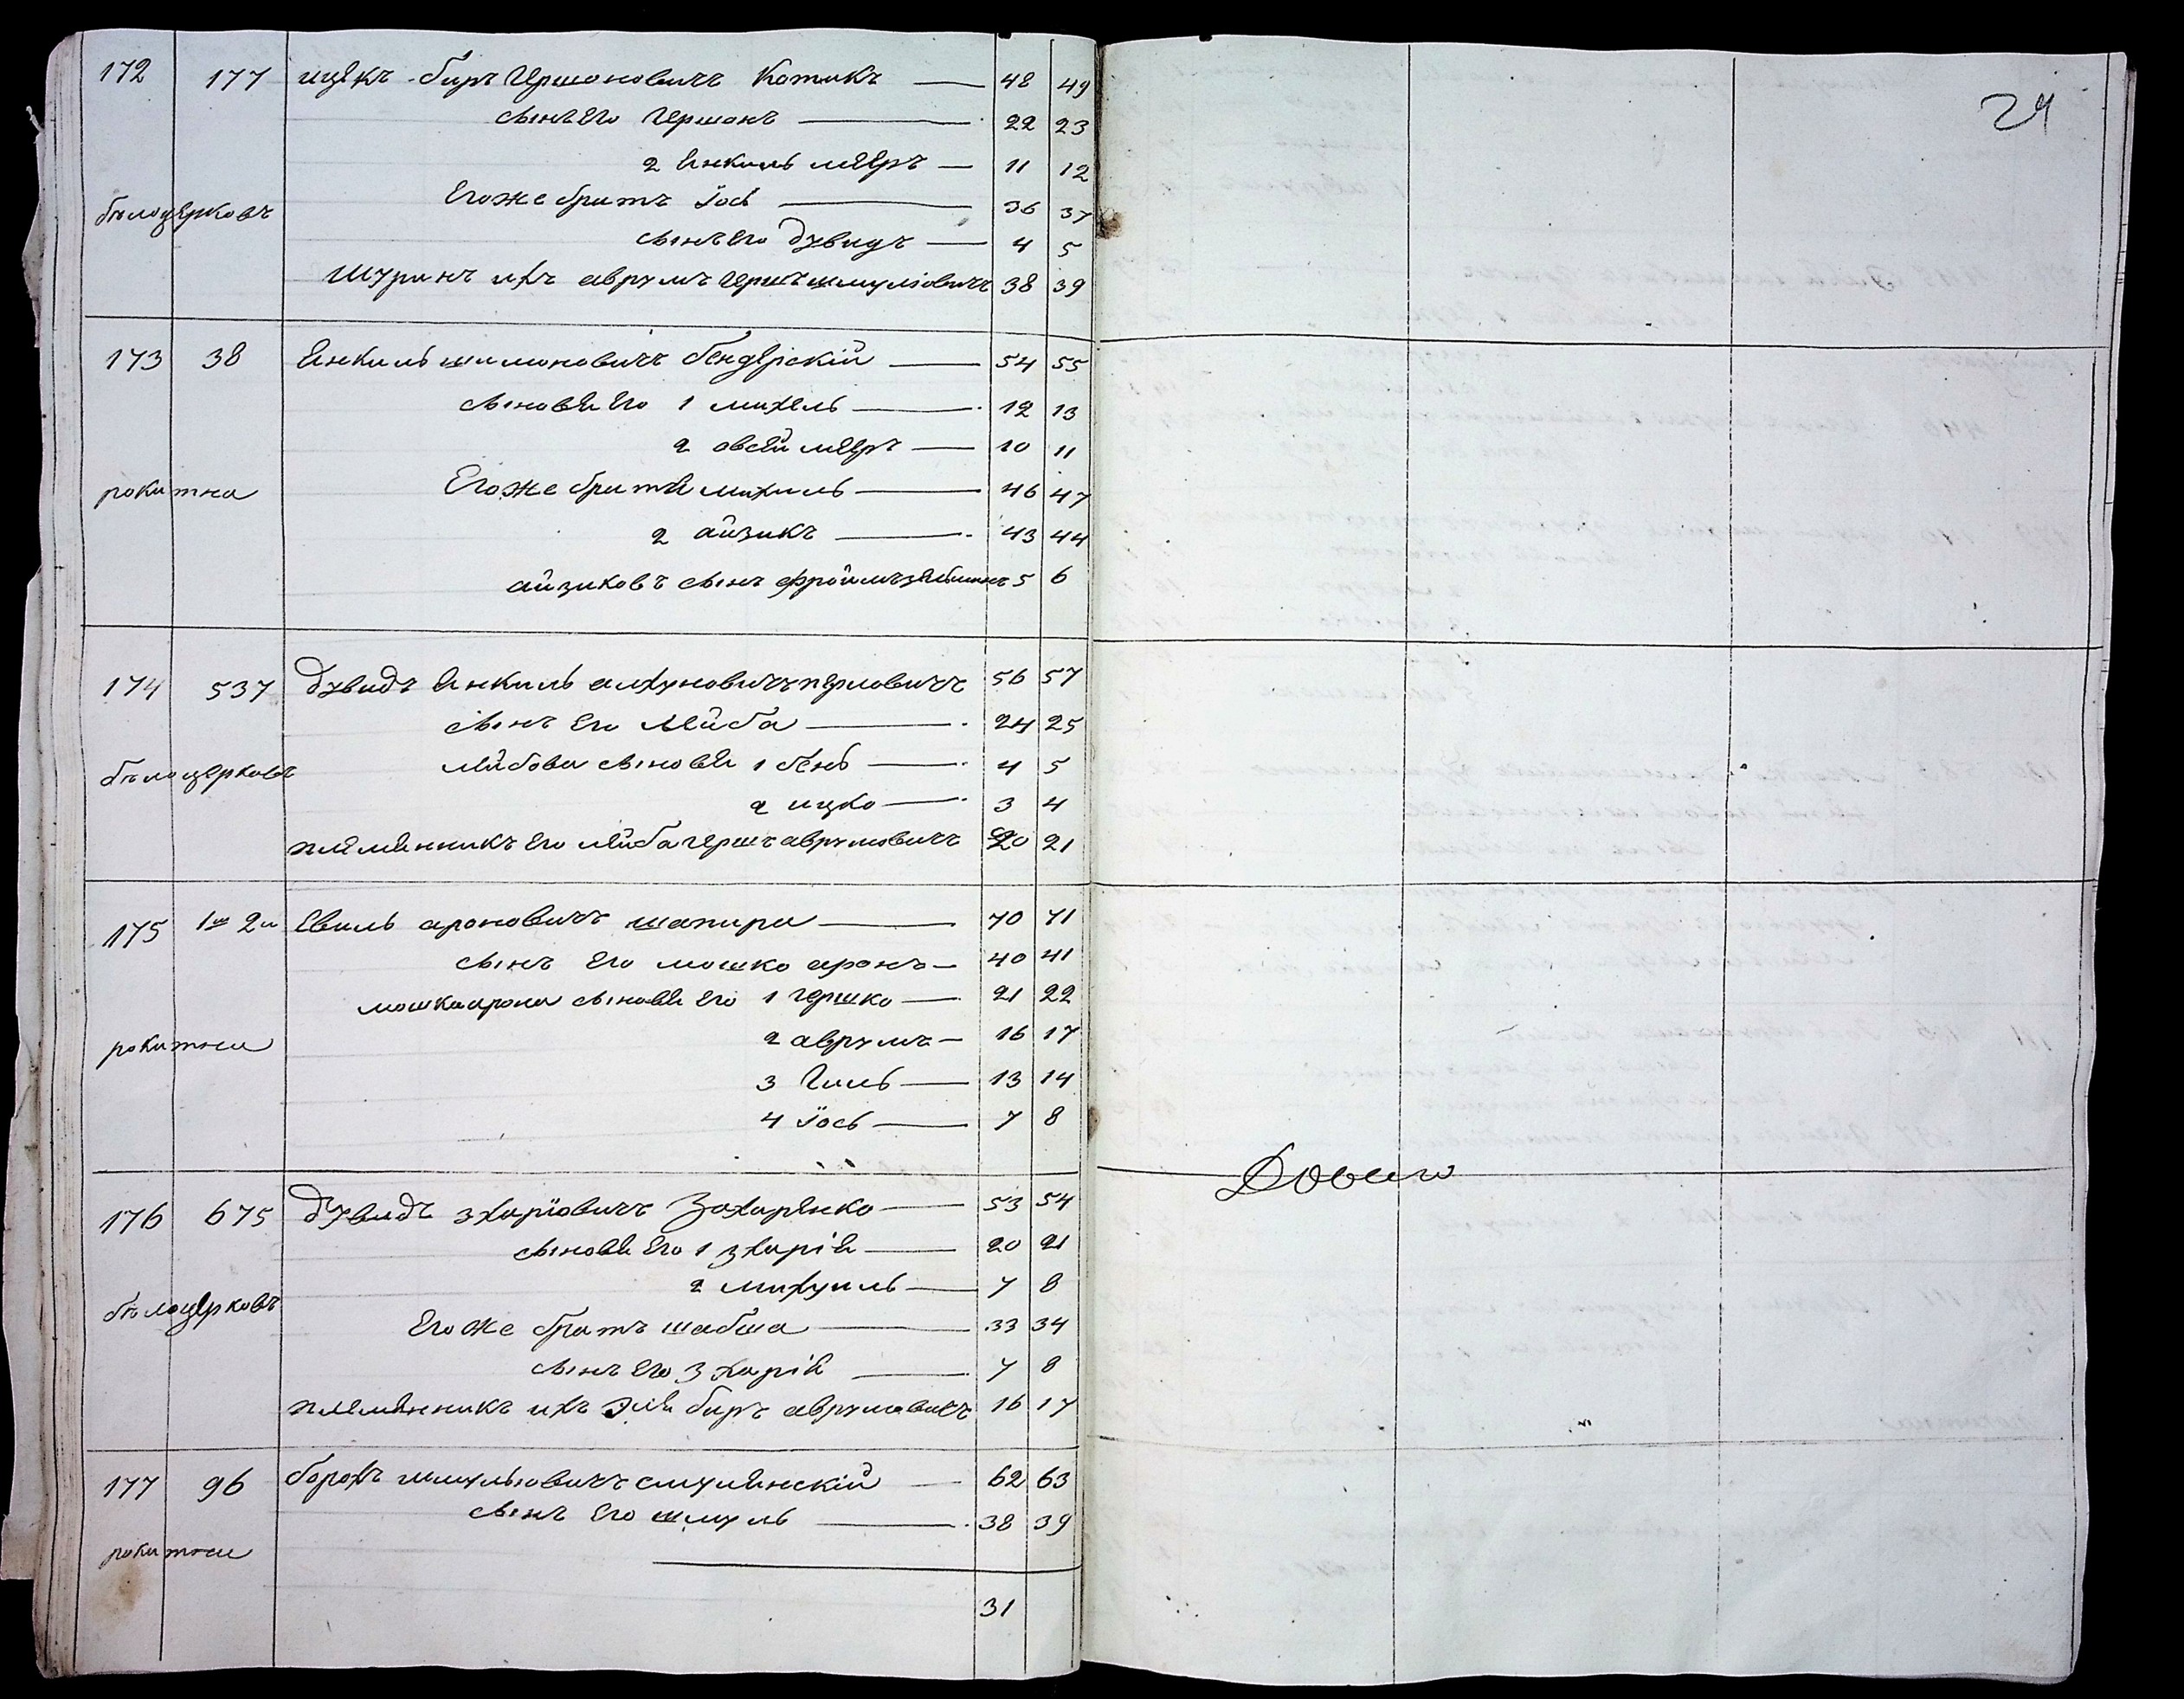 172 177 ицекъ-Беръ Гершоновичъ Котикъ 48 49
сынъ его Гершонъ 22 23
2 Янкиль меэръ 11 12
Его же братъ Іось 36 37
бѣлоцерковъ
сынъ его Дувидъ 4 5
Шуринъ ихъ аврумъ Гершъ шмуліовичъ 38 39
173 38 Янкиль шимоновичъ бендерскій 54 55
сыновья его 1 михель 12 13
2 овсей меэръ 10 11
рокитна
Его же братья михиль 46 47
2 айзикъ 43 44
айзиковъ сынъ фроимъ 5 6
174 537 Дувидъ Янкиль елхуновичъ перловичъ 56 57
сынъ его Лейба 24 25
бѣлоцерковъ
лейбова сыновья 1 бень 4 5
2 ицко 3 4
племянникъ его лейба гершъ аврумовичъ 20 21
175 1й 2й Евель ароновичъ шапира 70 71
сынъ его мошко аронъ 40 41
мошка арона сыновья его 1 Гершко 21 22
рокитна
2 аврумъ 16 17
3 Гиль 13 14
4 Іось 7 8
176 675 Дувидъ зхаріовичъ Захаренко 53 54
сыновья его 1 зхарія 20 21
2 михуиль 7 8
бѣлоцерковъ
Его же братъ шабша 33 34
сынъ его зхарія 7 8
племянникъ ихъ Эля беръ аврумовичъ 16 17
177 96 борохъ шмульовичъ смулянскій 62 63
сынъ его шмуль 38 39
рокитна
31
24